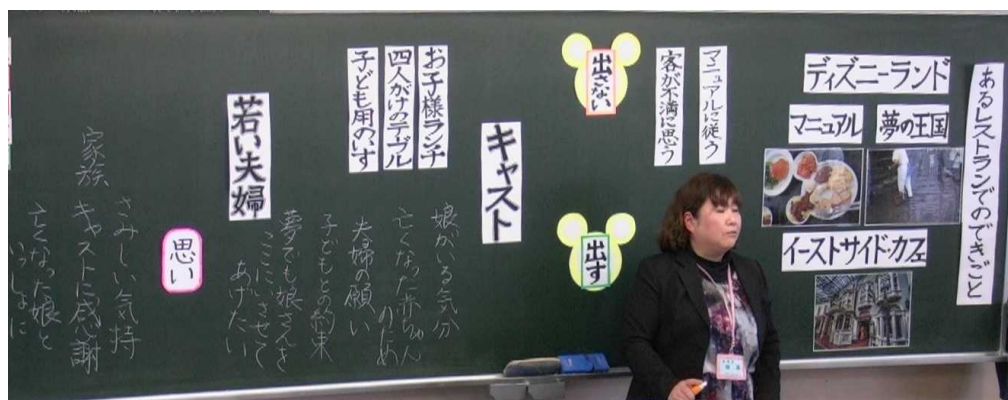 あるレストランでのできごと
ディズニーランド
夢の王国
マニュアル
イーストサイド・カフェ
マニュアルに従う
客が不満に思う
出さない
出す
キャスト
お子様ランチ
四人がけのテーブル
子ども用のいす
娘がいる気分
亡くなった赤ちゃん
のため
夫婦の願い
子どもとの約束
夢でも娘さんを
ここにいさせて
あげたい
若い夫婦
思い
さみしい気持
キャストに感謝
家族
亡くなった娘と
いっしょに